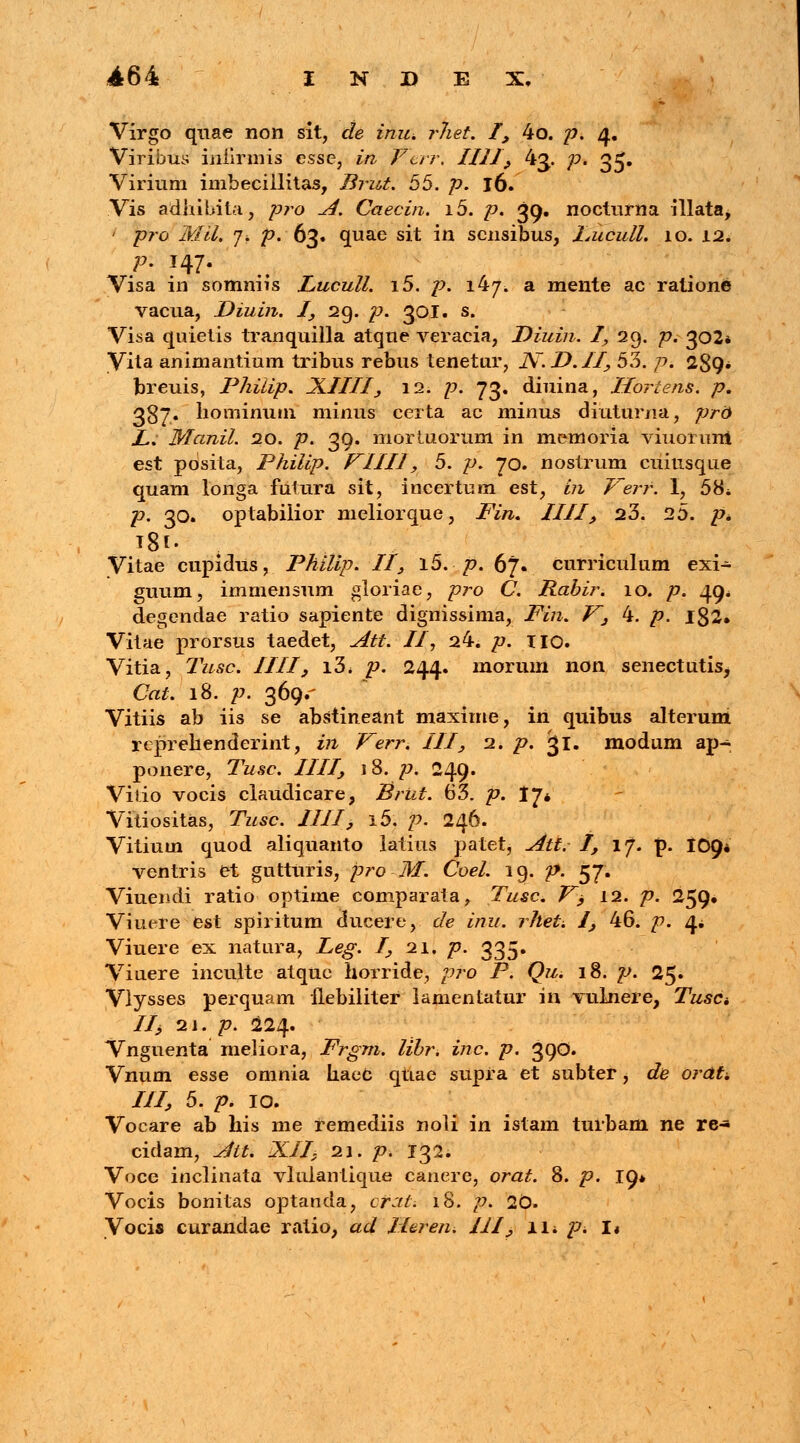 464 I N D E X.
Virgo quae non sit, de inu. rhet. I, 40. p. 4.
Viribus infirmis esse, in Verr. IIII, 43. p. 35.
Virium imbecillitas, Brut. 55. p. 16.
Vis adhibita, pro A. Caecin. 15. p. 39. nocturna illata,
pro Mil. 7. p. 63. quae sit in sensibus, Lucull. 10. 12.
p. 147.
Visa in somniis Lucull. 15. p. 147. a mente ac ratione
vacua, Diuin. I, 29. p. 301. s.
Visa quietis tranquilla atque veracia, Diuin. I, 29. p. 302.
Vita animantium tribus rebus tenetur, N. D. II, 53. p. 289.
breuis, Philip. XIIII, 12. p. 73. diuina, Hortens. p.
387. hominum minus certa ac minus diuturna, pro
L. Manil. 20. p. 39. mortuorum in memoria viuorum
est posita, Philip. VIIII, 5. p. 70. nostrum cuiusque
quam longa futura sit, incertum est, in Verr. I, 58.
p. 30. optabilior meliorque, Fin. IIII, 23. 25. p.
181.
Vitae cupidus, Philip. II, 15. p. 67. curriculum exi-
guum, immensum gloriae, pro C. Rabir. 10. p. 49.
degendae ratio sapiente dignissima, Fin. V, 4. p. 182.
Vitae prorsus taedet, Att. II, 24. p. 110.
Vitia, Tusc. IIII, 13. p. 244. morum non senectutis,
Cat. 18. p. 369.
Vitiis ab iis se abstineant maxime, in quibus alterum
reprehenderint, in Verr. III, 2. p. 31. modum ap-
ponere, Tusc. IIII, 18. p. 249.
Vitio vocis claudicare, Brut. 63. p. 17.
Vitiositas, Tusc. IIII, 15. p. 246.
Vitium quod aliquanto latius patet, Att. I, 17. p. 109.
ventris et gutturis, pro M. Coel. 19. p. 57.
Viuendi ratio optime comparata, Tusc. V, 12. p. 259.
Viuere est spiritum ducere, de inu. rhet. I, 46. p. 4.
Viuere ex natura, Leg. I, 21. p. 335.
Viuere inculte atque horride, pro P. Qu. 18. p. 25.
Vlysses perquam flebiliter lamentatur in vulnere, Tusc.
II, 21. p. 224.
Vnguenta meliora, Frgm. libr. inc. p. 390.
Vnum esse omnia haec quae supra et subter, de orat.
III, 5. p. 10.
Vocare ab his me remediis noli in istam turbam ne re-
cidam, Att. XII, 21. p. 132.
Voce inclinata vlulantique canere, orat. 8. p. 19.
Vocis bonitas optanda, orat. 18. p. 20.
Vocis curandae ratio, ad Heren. III, 11. p. 1.